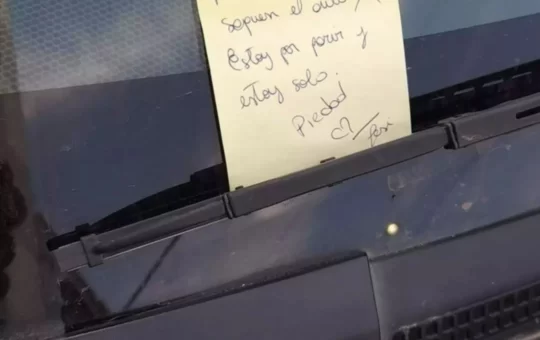 saquen el auto
Estoy por parir y
estoy solo.
Piedad